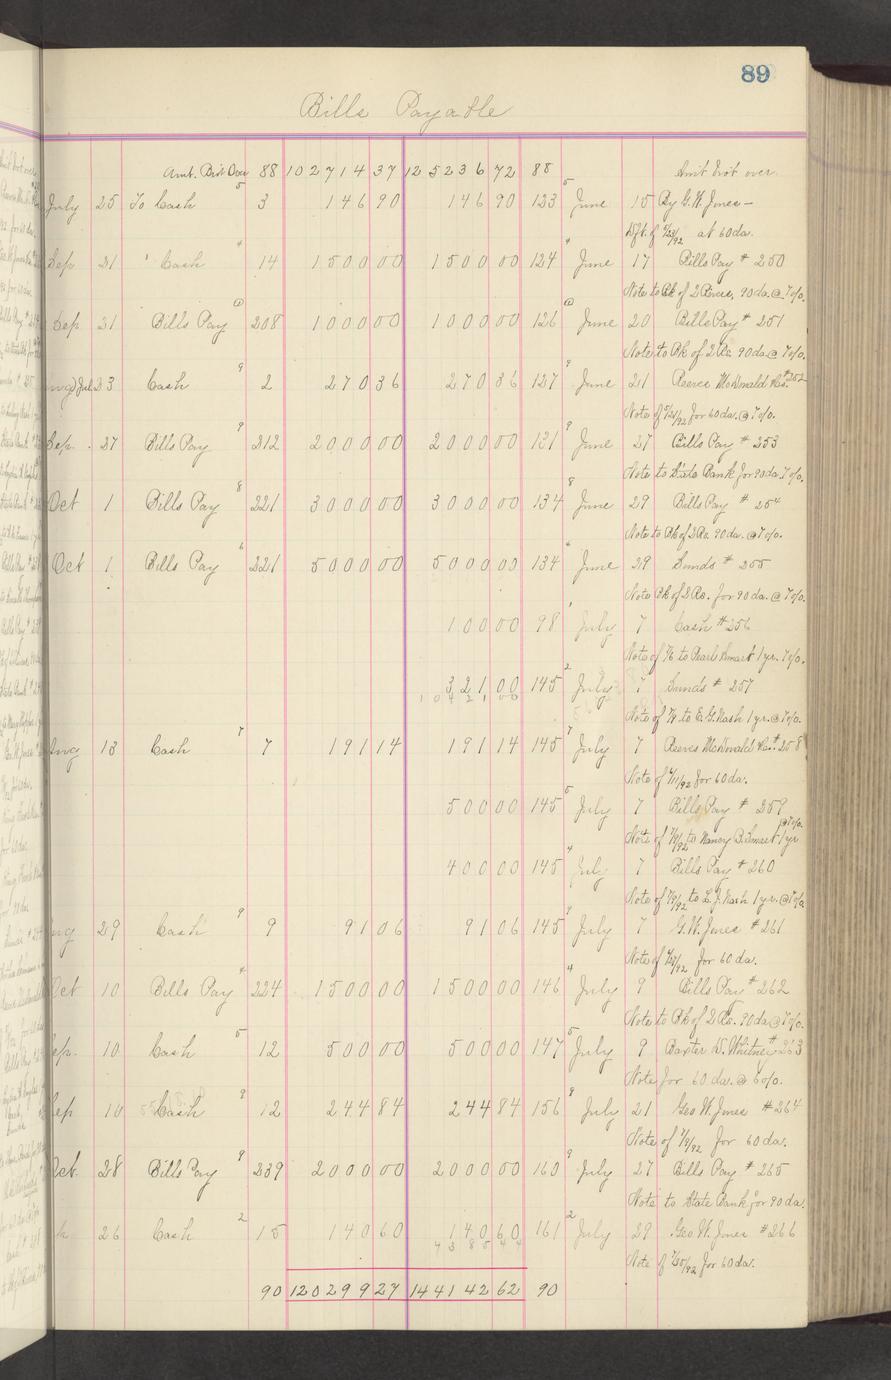 89
Bills Payable
Amt. Brot Over 88 102714 37 125236 72 88 Amt brot over
July 25 To Cash 5 3 146 90 146 90 123 5 June 15 By G. W. Jones —
Dft. of at 60 da.
Sep 21 " Cash 4 14 1500 00 1500 00 124 4 June 17 Bills Pay # 250
Note to Bk of 2 Rivers, 90 da. @ 7 o/o.
Sep 21 Bills Pay 208 1000 00 1000 00 126 June 20 Bills Pay # 251
Note to Bk of 2 Rs. 90 da @ 7 o/o.
July 23 Cash 9 2 270 36 270 36 127 9 June 21 Reeves McDonald #252
Note of for 60 da. @ 7 o/o.
Sep. 27 Bills Pay 9 212 2000 00 2000 00 131 9 June 27 Bills Pay # 253
Note to State Bank for 90 da. 7 o/o.
Oct 1 Bills Pay 8 221 3000 00 3000 00 134 8 June 29 Bills Pay # 254
Note to Bk of 2 Rs. 90 da. @ 7 o/o.
Oct 1 Bills Pay 6 221 5000 00 5000 00 134 6 June 29 Sunds # 255
Note Bk of 2 Rs. for 90 da. @ 7 o/o.
100 00 98 1 July 7 Cash # 256
Note of 7/6 to Pearl Smart 1 yr. 7 o/o.
321 00 145 2 July 7 Sunds # 257
1042 1 00
Note of to E. G. Nash 1 yr. @ 7 o/o.
Aug 13 Cash 7 7 191 14 191 14 145 7 July 7 Reeves McDonald # 258
Note of 6/11/92 for 60 da.
500 00 145 5 July 7 Bills Pay # 259
@ 7 o/o.
Note of to Nancy B. Smart 1 yr
400 00 145 4 July 7 Bills Pay # 260
Note of to L. J. Nash 1 yr. @ 7 o/o
Aug 29 Cash 9 9 91 06 91 06 145 9 July 7 G. W. Jones # 261
Note of for 60 da.
Oct 10 Bills Pay 4 224 1500 00 1500 00 146 4 July 9 Bills Pay # 262
Note to Bk of 2 Rs. 90 da @ 7 o/o.
Sep. 10 Cash 5 12 500 00 500 00 147 5 July 9 Baxter D. Whitney # 263
Note for 60 da. @ 6 o/o.
Sep 10 Cash 9 12 244 84 244 84 156 9 July 21 Geo W. Jones # 264
Note of 7/9/92 for 60 da.
Oct. 28 Bills Pay 9 239 2000 00 2000 00 160 9 July 27 Bills Pay # 265
Note to State Bank for 90 da.
26 Cash 2 15 140 60 140 60 161 2 July 29 Geo W. Jones # 266
Note of for 60 da.
90 120299 27 144142 62 90